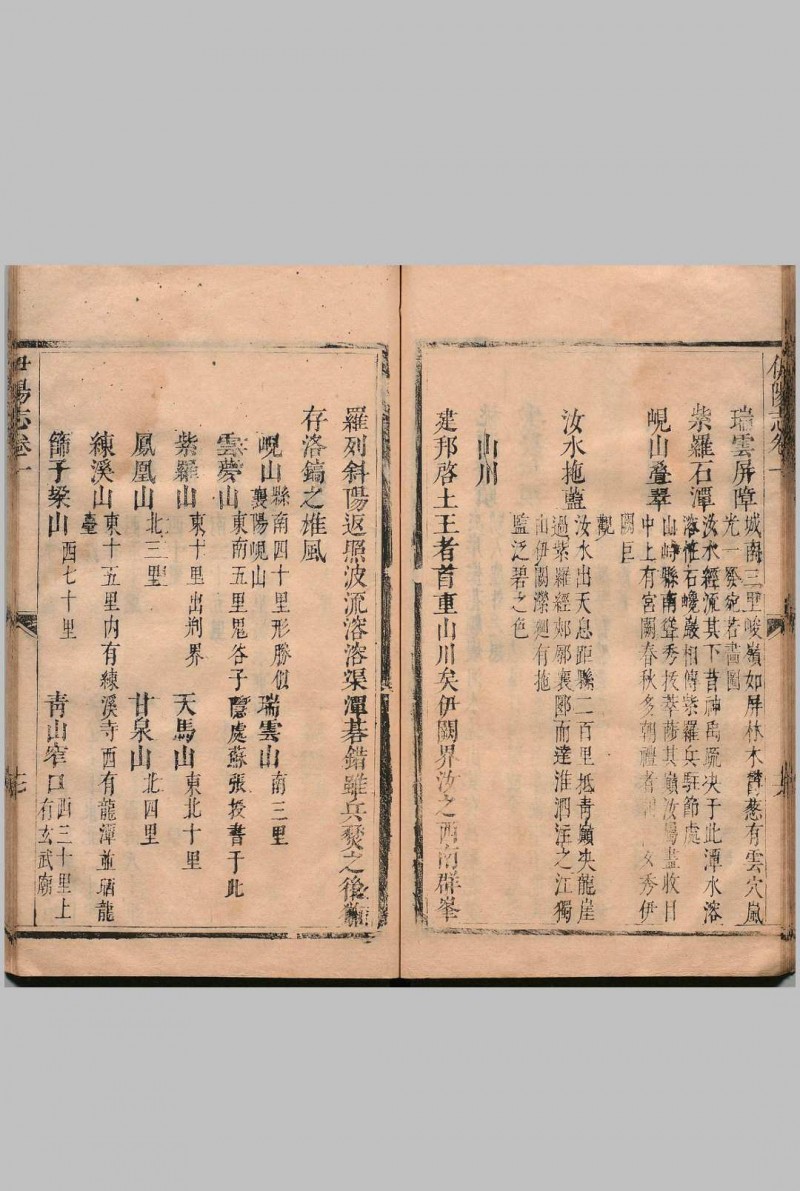 伊陽志卷一
瑞雲屏障
城南三里峻嶺如屏林木欝葱有雲穴嵐
光一𤼵宛若畫圖
紫羅石潭
汝水經流其下昔神禹疏决于此潭水溶
溶怪石巉巖相傳紫羅兵駐節處
峴山叠翠
山峙縣南聳秀㧞萃陟其巔汝陽盡收目
中上有宮闕春秋多朝禮者 汝秀伊
闕巨
觀
汝水拖藍
汝水出天息距縣二百里抵靑嶺决龍崖
過紫羅經郟郭襄郾而達淮泗注之江獨
山伊闕瀠廻有拖
藍泛碧之色
山川
建邦啓土王者首重山川矣伊闕界汝之西南群峯
羅列斜陽返照波流溶溶渠潭碁錯雖兵燹之後猶
存洛鎬之雄風
峴山
縣南四十里形勝似
襄陽峴山
瑞雲山
南三里
雲夢山
東南五里鬼谷子隱處蘇張授書于此
紫羅山
東十里出荆界
天馬山
東北十里
鳳凰山
北三里
甘泉山
北四里
練溪山
東十五里内有練溪寺西有龍潭並晒龍
臺
篩子垜山
西七十里
靑山窄口
西三十里上
有玄武廟
伊陽志卷一
十七